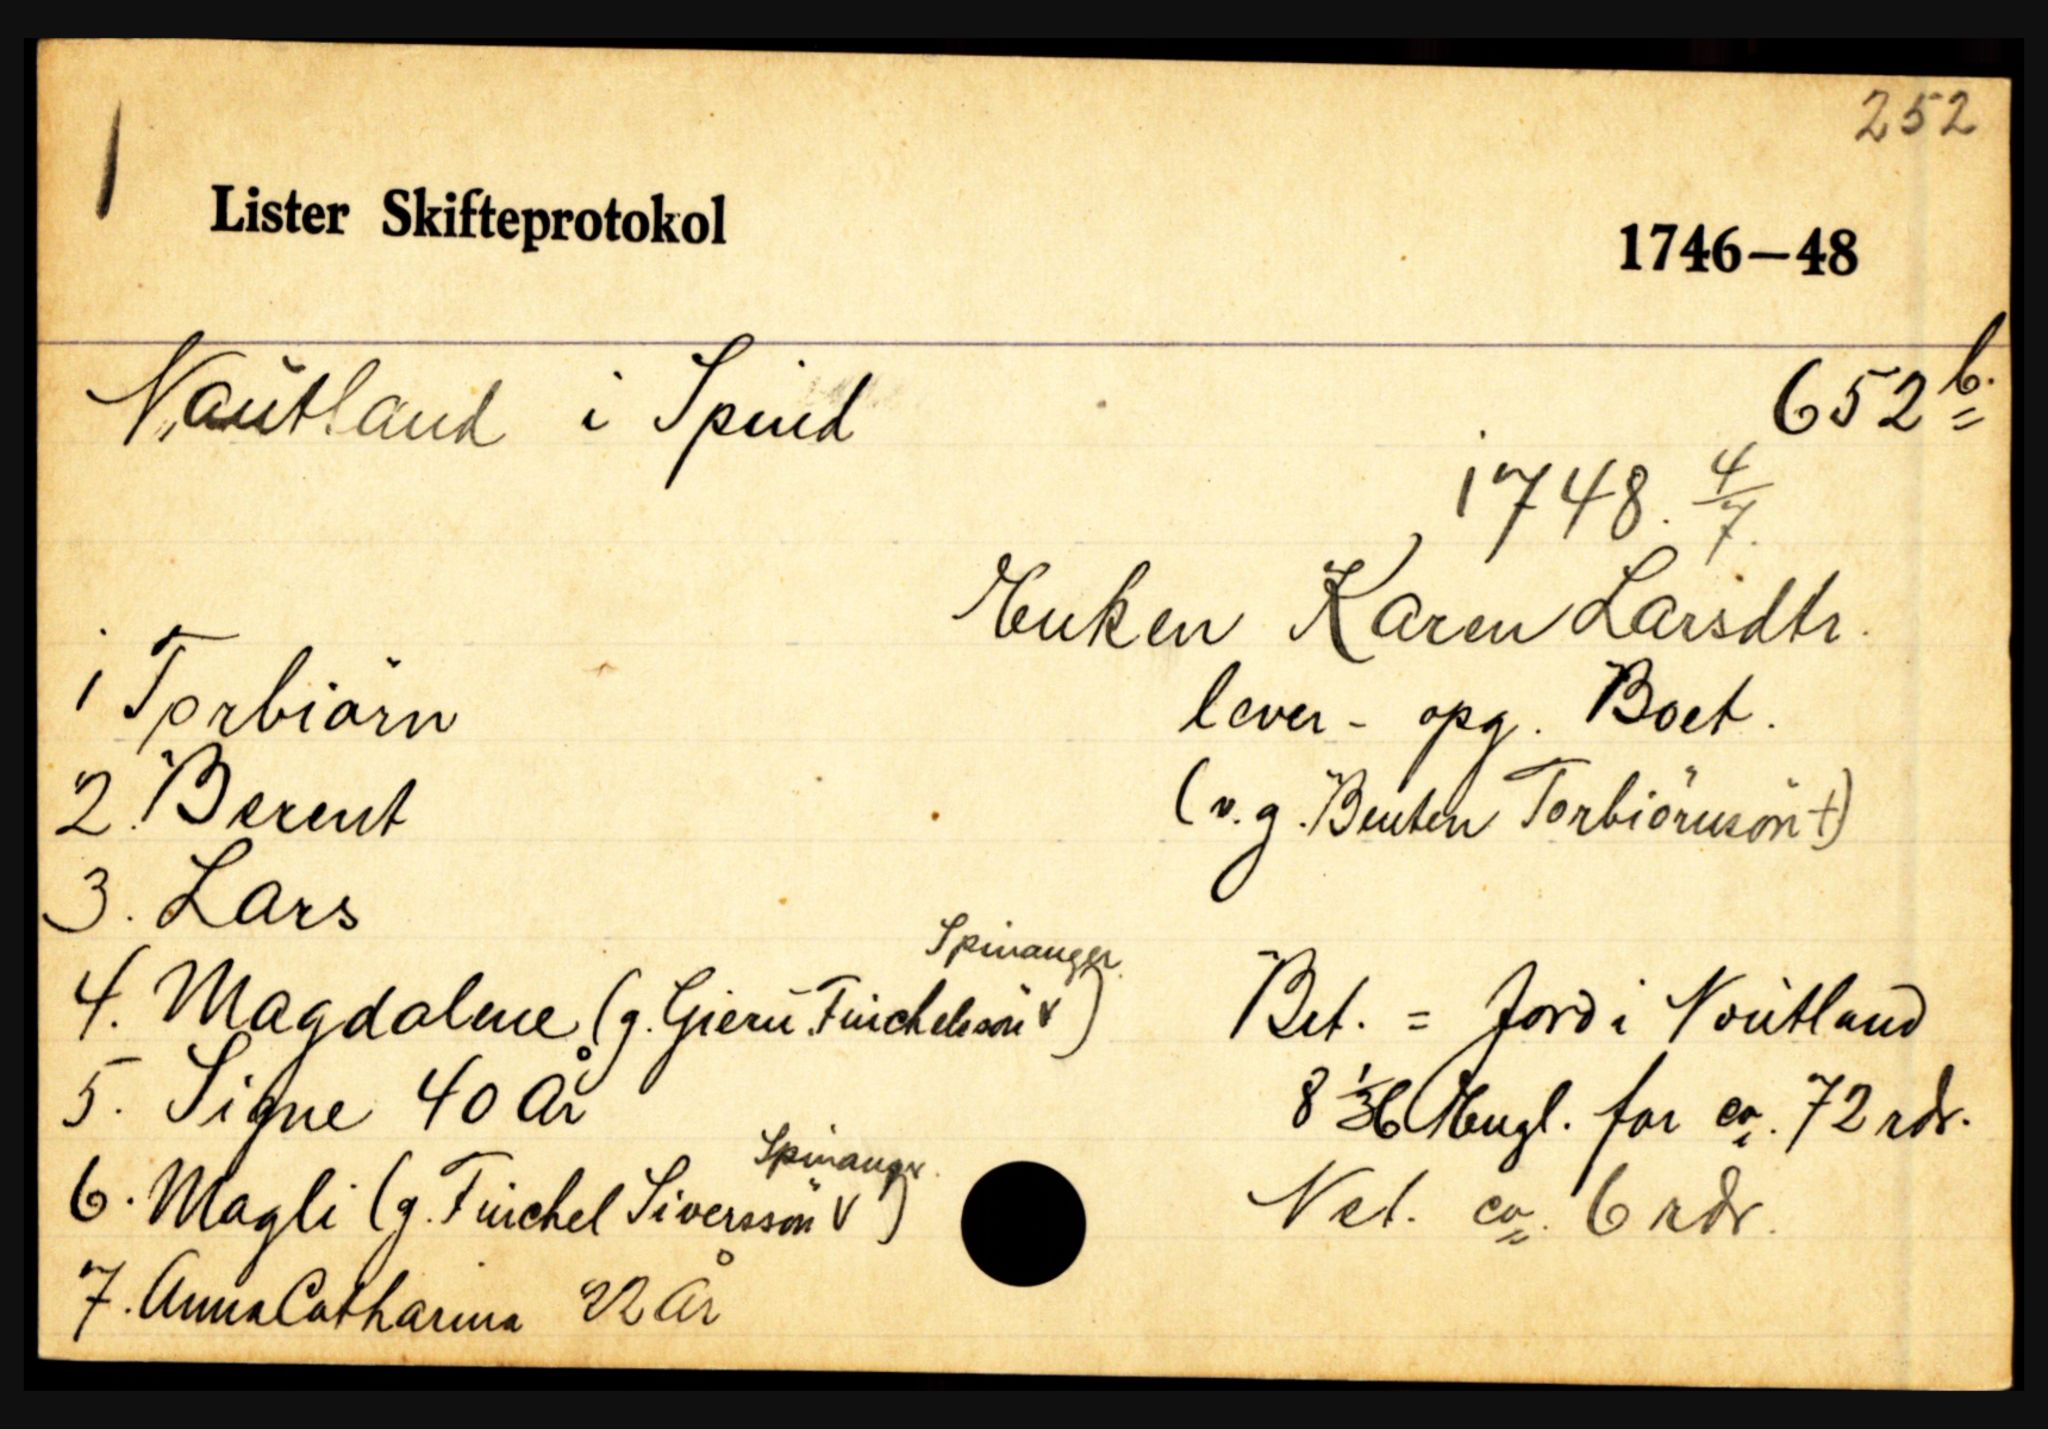 252
1
Lister Skifteprotokol 1746–48
Nautland i Spind 652 b.
1748. 4/7.
Enken Karen Larsdtr.
lever - opg. Boet.
(v. g. Benten Torbiörnsön †)
1 Torbiörn
2. Berent
3. Lars
Spinanger
4. Magdalene (g. Gieru Finchelssön v)
5. Signe 40 år
Spinangr.
6. Magli (g. Finchel Siverssön v)
7. Anna Catharina 22 år
Bet. = Jord i Noutland
8 1/36 Engl. for ca. 72 rdr.
Net. ca. 6 rdr.